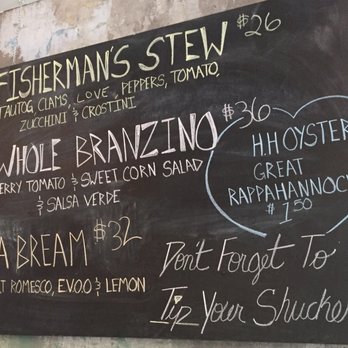 FISHERMAN'S STEW $26
TAUTOG, CLAMS, LOVE, PEPPERS, TOMATO,
ZUCCHINI & CROSTINI
WHOLE BRANZINO $36
ERRY TOMATO & SWEET CORN SALAD
& SALSA VERDE
A BREAM $32
T ROMESCO, EVOO & LEMON
HH OYSTER
GREAT
RAPPAHANNOCK
$1.50
Don't Forget To
Tip Your Shucke